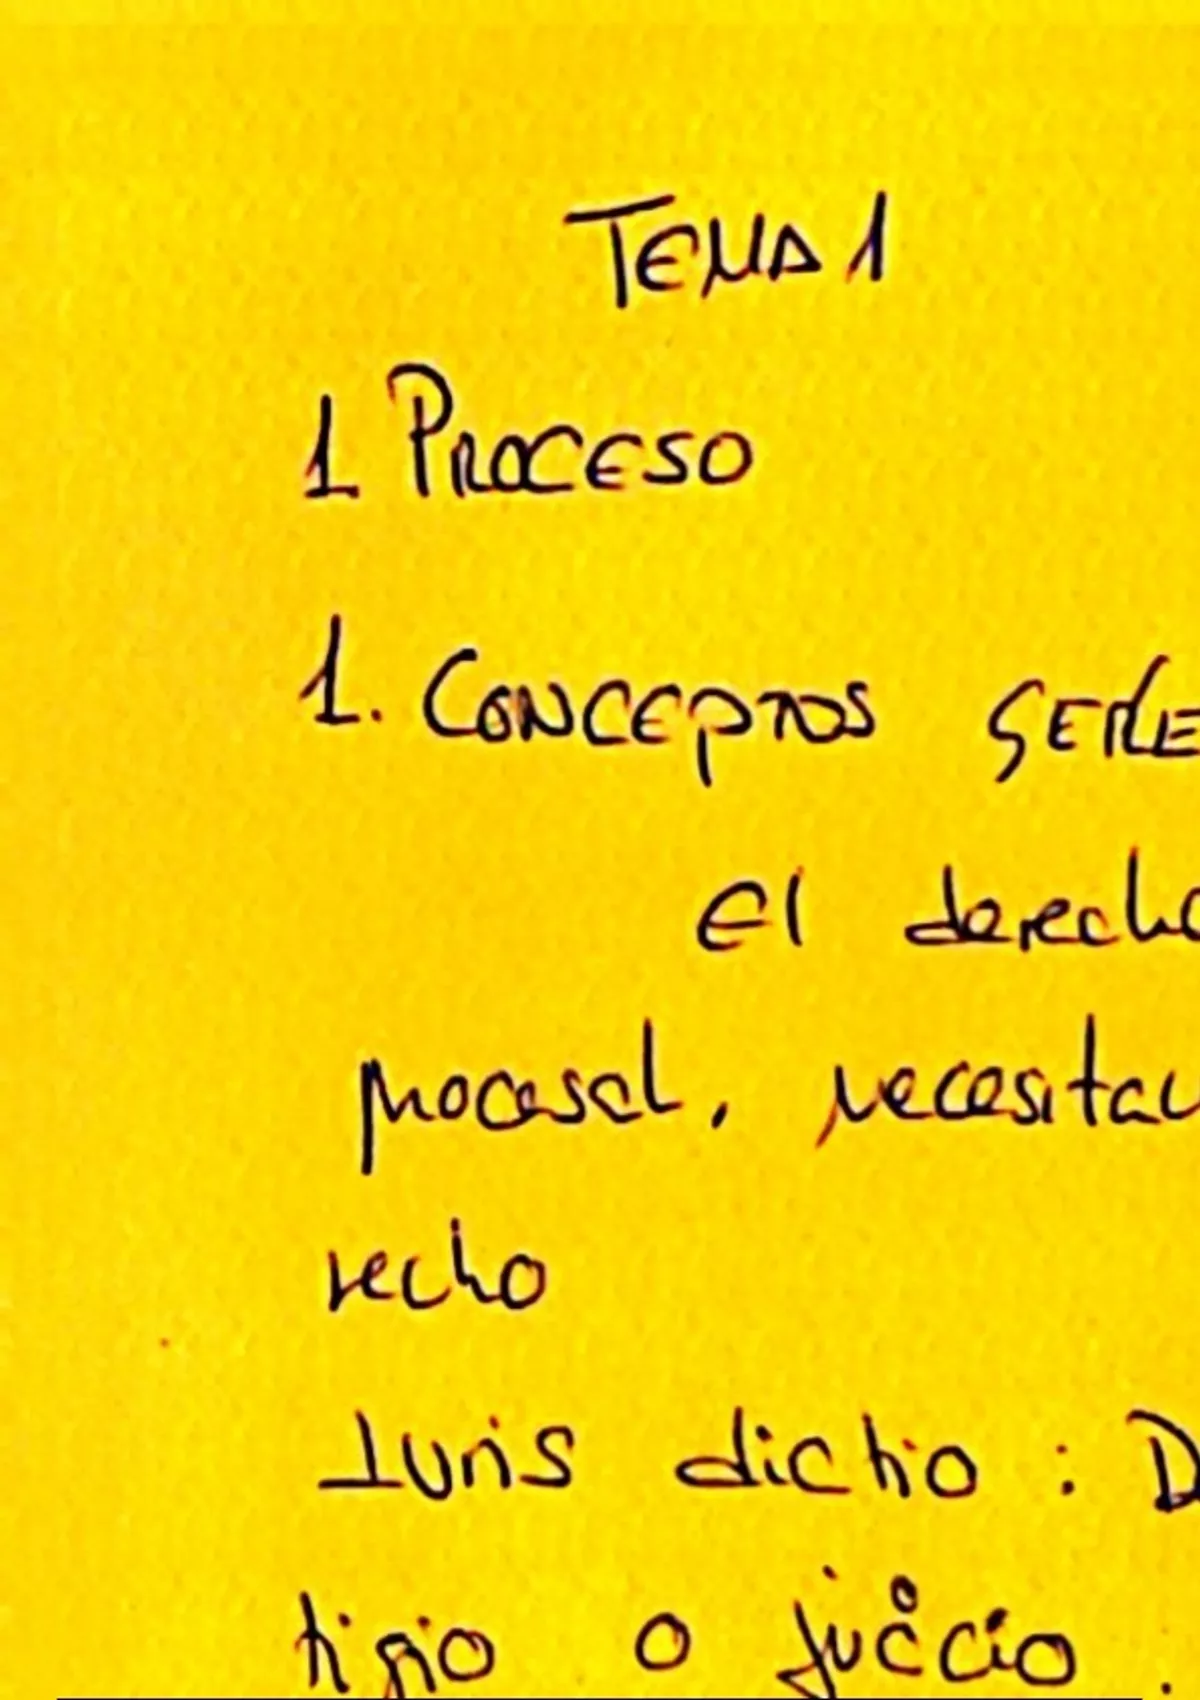 TEMA 1
1 PROCESO
1. CONCEPTOS GENE
El derecho
procesal, necesitan
recho
Iuris dictio : D
tigio o juicio.